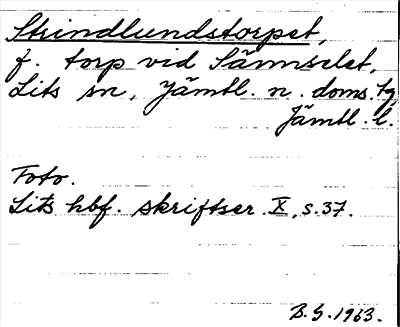 Strindlundstorpet,
f. torp vid Sännselet,
Lits sn, Jämtl. n. doms. tg,
Jämtl. l.
Foto.
Lits hbf. skriftser. X, s. 37.
B. G. 1963.